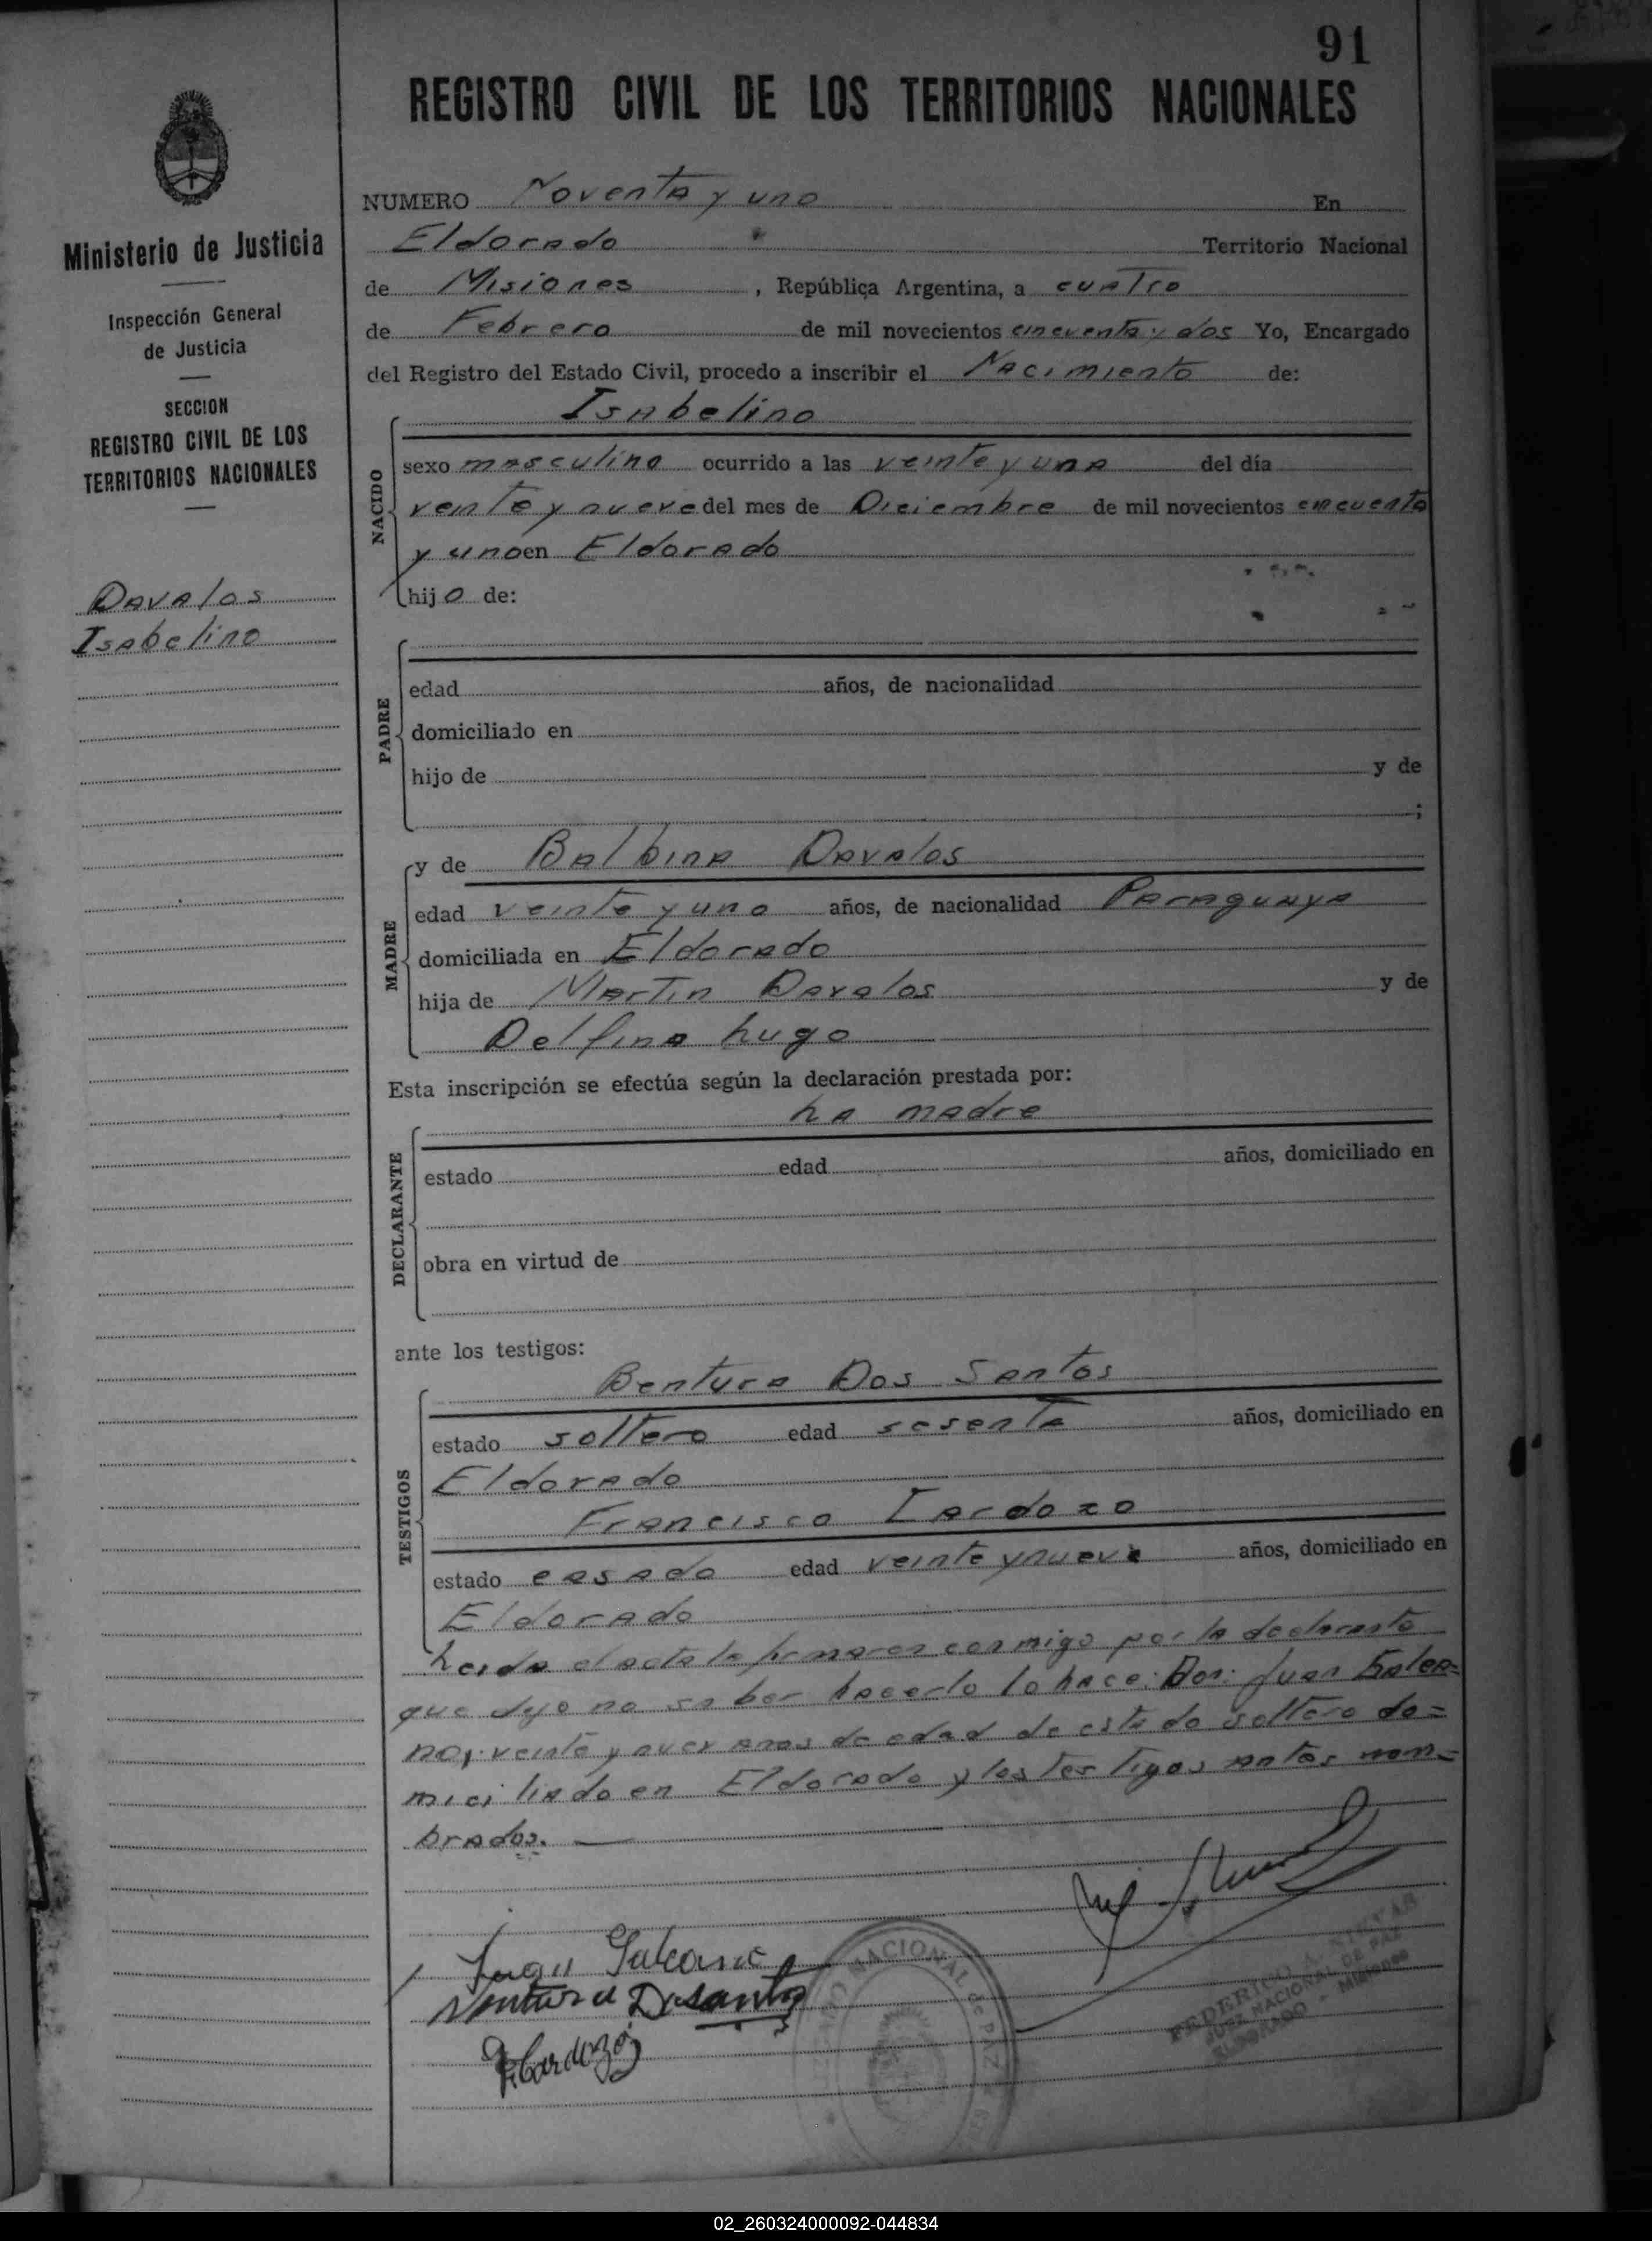 91
REGISTRO CIVIL DE LOS TERRITORIOS NACIONALES
Ministerio de Justicia
Inspección General
de Justicia
SECCION
REGISTRO CIVIL DE LOS
TERRITORIOS NACIONALES
Davalos
Isabelino
NUMERO Noventa y uno En
Eldorado Territorio Nacional
de Misiones, República Argentina, a cuatro
de Febrero de mil novecientos cincuenta y dos Yo, Encargado
del Registro del Estado Civil, procedo a inscribir el Nacimiento de:
NACIDO
Isabelino
sexo masculino ocurrido a las veinte y una del día
veinte y nueve del mes de Diciembre de mil novecientos cincuenta
y uno en Eldorado
hijo de:
PADRE
edad años, de nacionalidad
domiciliado en
hijo de y de
;
MADRE
y de Balbina Davalos
edad veinte y uno años, de nacionalidad Paraguaya
domiciliada en Eldorado
hija de Martin Davalos y de
Delfina Lugo
Esta inscripción se efectúa según la declaración prestada por:
La madre
DECLARANTE
estado edad años, domiciliado en
obra en virtud de
ante los testigos:
TESTIGOS
Bentura Dos Santos
estado soltero edad sesenta años, domiciliado en
Eldorado
Francisco Cardozo
estado casado edad veinte y nueve años, domiciliado en
Eldorado
Leida el acta la firmaron conmigo por la declarante
que dijo no saber hacerlo lo hace: Don: Juan Galea=
no, veinte y nuev anos de edad de estado soltero do=
miciliado en Eldorado y los testigos antes nom=
brados.
Juan Galeano
Ventura Dosanto
F. Cardozo
NACIONAL de PAZ
FEDERICO A.
JUEZ NACIONAL DE PAZ
ELDORADO - Misiones
02_260324000092-044834